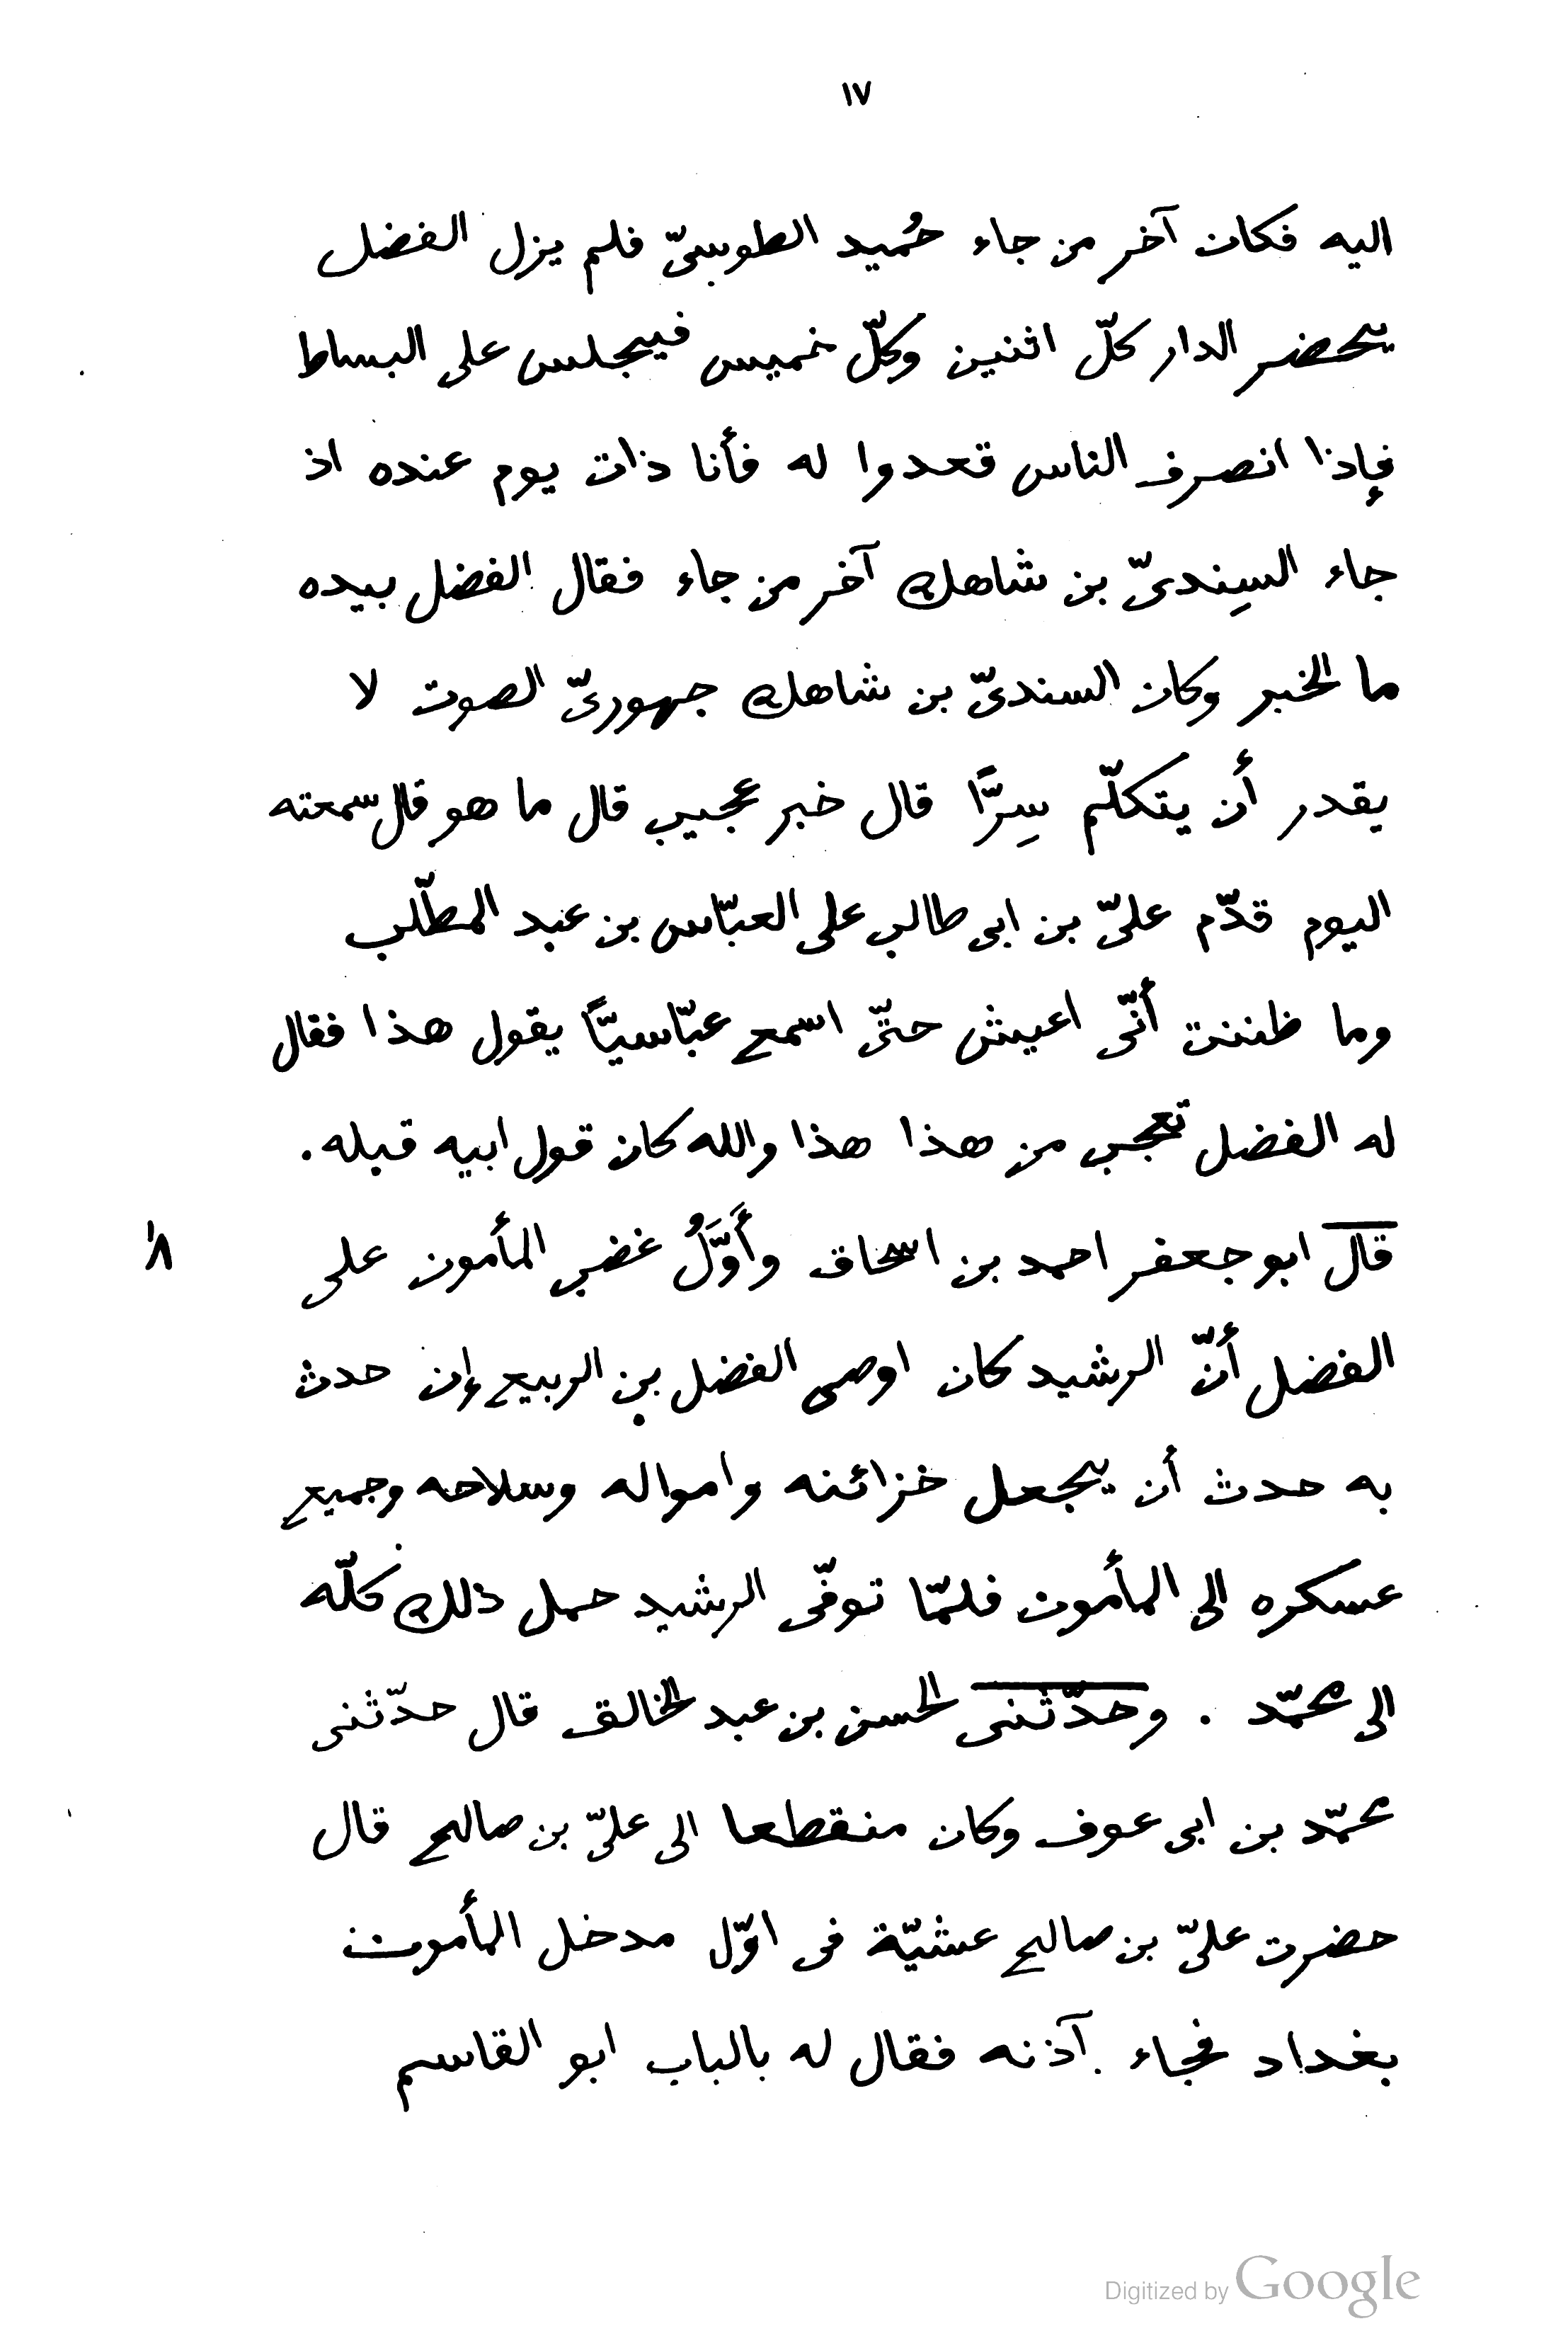 ١٧
اليه فكان آخر من جاء حُميد الطوسىّ فلم يزل الفضل
يحضر الدار كلّ اثنين وكلّ خميس فيجلس على البساط
فإذا انصرف الناس قعدوا له فأنا ذات يوم عنده اذ
جاء السِندىّ بن شاهك آخر من جاء فقال الفضل بيده
ما الخبر وكان السندىّ بن شاهك جهورىّ الصوت لا
يقدر أن يتكلّم سِرًّا قال خبر عجيب قال ما هو قال سمعته
اليوم قدّم علىّ بن ابى طالب على العبّاس بن عبد المطّلب
وما ظننت أنّى اعيش حتّى اسمع عبّاسيًّا يقول هذا فقال
له الفضل تعجب من هذا هذا والله كان قول ابيه قبله .
قال ابو جعفر احمد بن اسحاق وأَوَّلُ غضب المأمون على
٨'
الفضل أنّ الرشيد كان اوصى الفضل بن الربيع إن حدث
به حدث أن يجعل خزائنه وامواله وسلاحه وجميع
عسكره الى المأمون فلمّا توفّى الرشيد حمل ذلك كلّه
الى محمّد . وحدّثنى الحسن بن عبد الخالق قال حدّثنى
محمّد بن ابى عوف وكان منقطعا الى علىّ بن صالح قال
حضرت علىّ بن صالح عشيّة فى اوّل مدخل المأمون
بغداد فجاء آذنه فقال له بالباب ابو القاسم
Digitized by Google